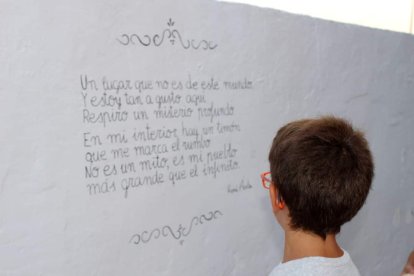 Un lugar que no es de este mundo
Y estoy tan a gusto aquí
Respiro un misterio profundo
En mi interior hay un timón
que me marca el rumbo
No es un mito, es mi pueblo
más grande que el infinito